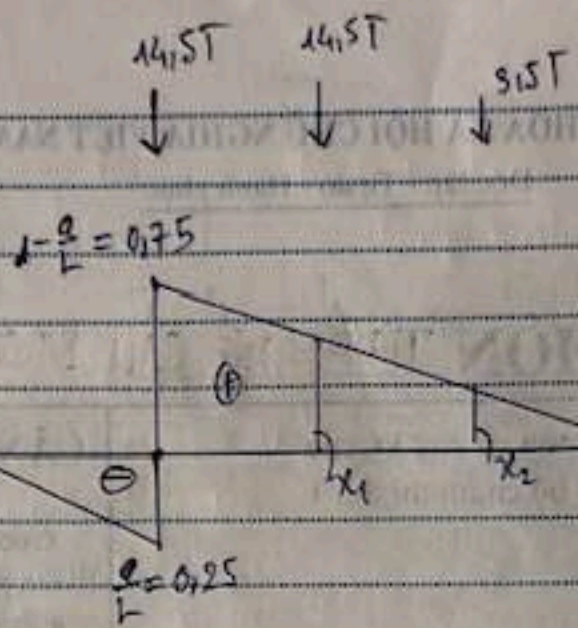 14,5T 14,5T 3,5T
1-a/L = 0,75
⊕
⊖ x1 x2
a/L = 0,25